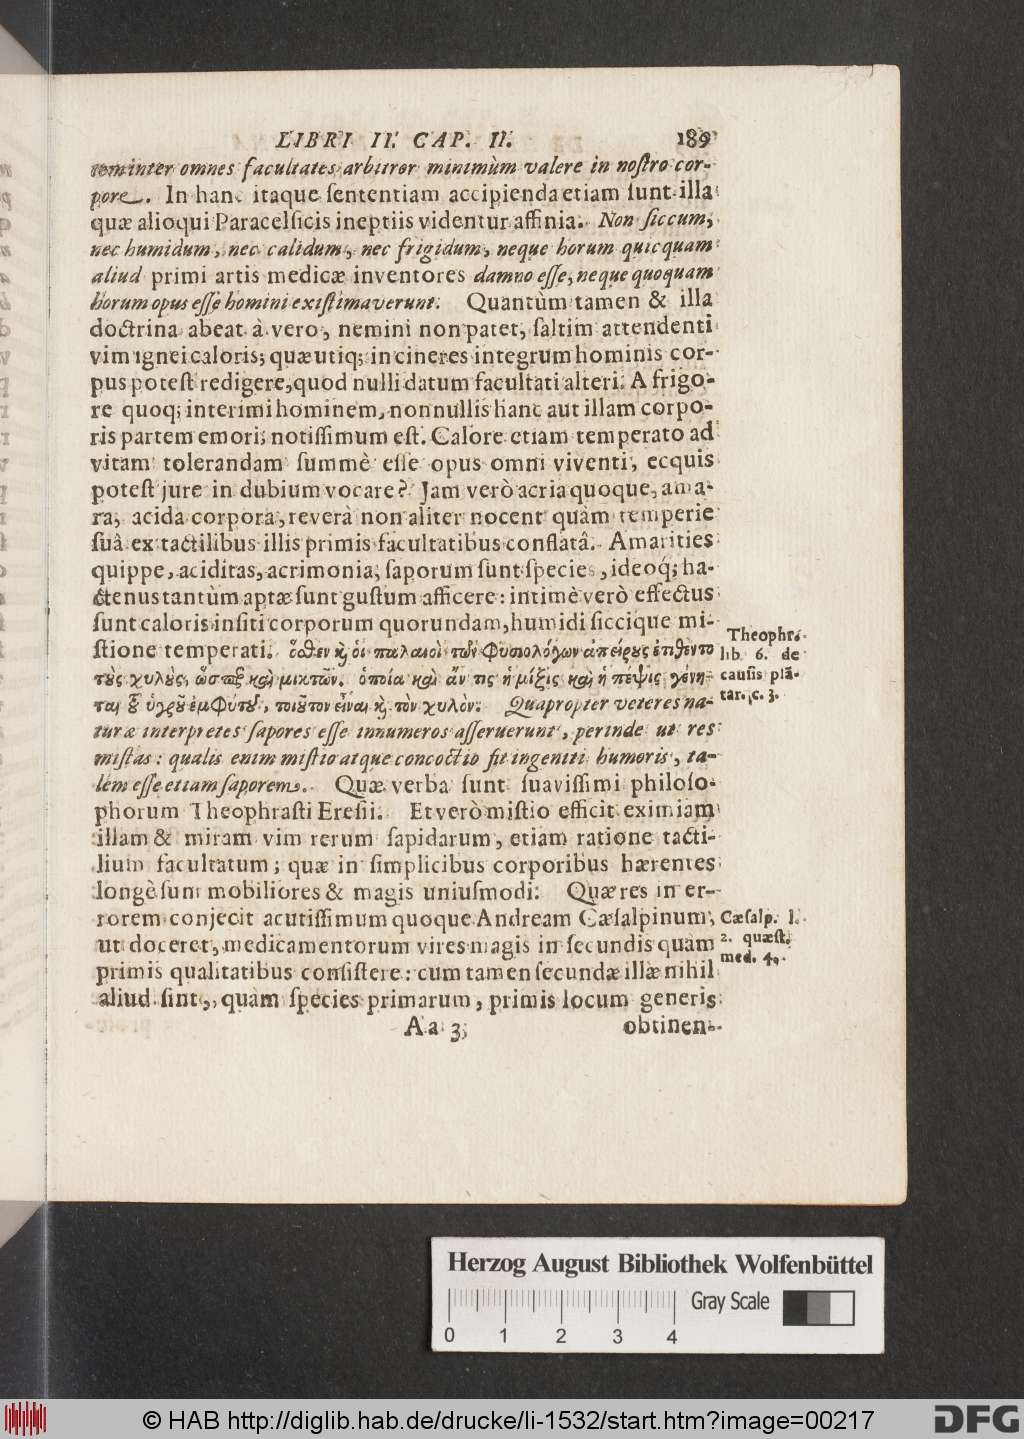 LIBRI II. CAP. II. 189
rem inter omnes facultates arbitror minimùm valere in nostro cor-
pore. In hanc itaque sententiam accipienda etiam sunt illa
quæ alioqui Paracelsicis ineptiis videntur affinia. Non siccum,
nec humidum, nec calidum, nec frigidum, neque horum quicquam
aliud primi artis medicæ inventores damno esse, neque quoquam
horum opus esse homini existimaverunt. Quantùm tamen & illa
doctrina abeat à vero, nemini non patet, saltim attendenti
vim ignei caloris; quæ utiq; in cineres integrum hominis cor-
pus potest redigere, quod nulli datum facultati alteri. A frigo-
re quoq; interimi hominem, nonnullis hanc aut illam corpo-
ris partem emori, notissimum est. Calore etiam temperato ad
vitam tolerandam summè esse opus omni viventi, ecquis
potest jure in dubium vocare? Jam verò acria quoque, ama-
ra, acida corpora, reverà non aliter nocent quàm temperie
suâ ex tactilibus illis primis facultatibus conflatâ. Amarities
quippe, aciditas, acrimonia, saporum sunt species, ideoq́; ha-
ctenus tantùm aptæ sunt gustum afficere: intimè verò effectus
sunt caloris insiti corporum quorundam, humidi siccique mi-
stione temperati. ὅθεν κ̀ οἱ παλαιοὶ τῶν φυσιολόγων ἀπείρους ἐπιθεντο
τοὺς χυλοὺς, ὥσπερ καὶ μικτῶν. ὁποία καὶ ἄν τις ἡ μίξις καὶ ἡ πέψις γένη-
ται τοῦ ὑγροῦ ἐμφύτου, τοιοῦτον εἶναι κ̀ τὸν χυλόν. Quapropter veteres na-
turæ interpretes sapores esse innumeros asseruerunt, perinde ut res
mistas: qualis enim mistio atque concoctio sit ingeniti humoris, ta-
lem esse etiam saporem. Quæ verba sunt suavissimi philoso-
phorum Theophrasti Eresii. Et verò mistio efficit eximiam
illam & miram vim rerum sapidarum, etiam ratione tacti-
lium facultatum; quæ in simplicibus corporibus hærentes
longè sunt mobiliores & magis uniusmodi. Quæ res in er-
rorem conjecit acutissimum quoque Andream Cæsalpinum,
ut doceret, medicamentorum vires magis in secundis quàm
primis qualitatibus consistere: cum tamen secundæ illæ nihil
aliud sint, quàm species primarum, primis locum generis
Aa 3 obtinen-
Theophr.
lib. 6. de
causis plã-
tar. c. 3.
Cæsalp. l.
2. quæst.
med. 4.
Herzog August Bibliothek Wolfenbüttel
Gray Scale
0 1 2 3 4
© HAB http://diglib.hab.de/drucke/li-1532/start.htm?image=00217
DFG